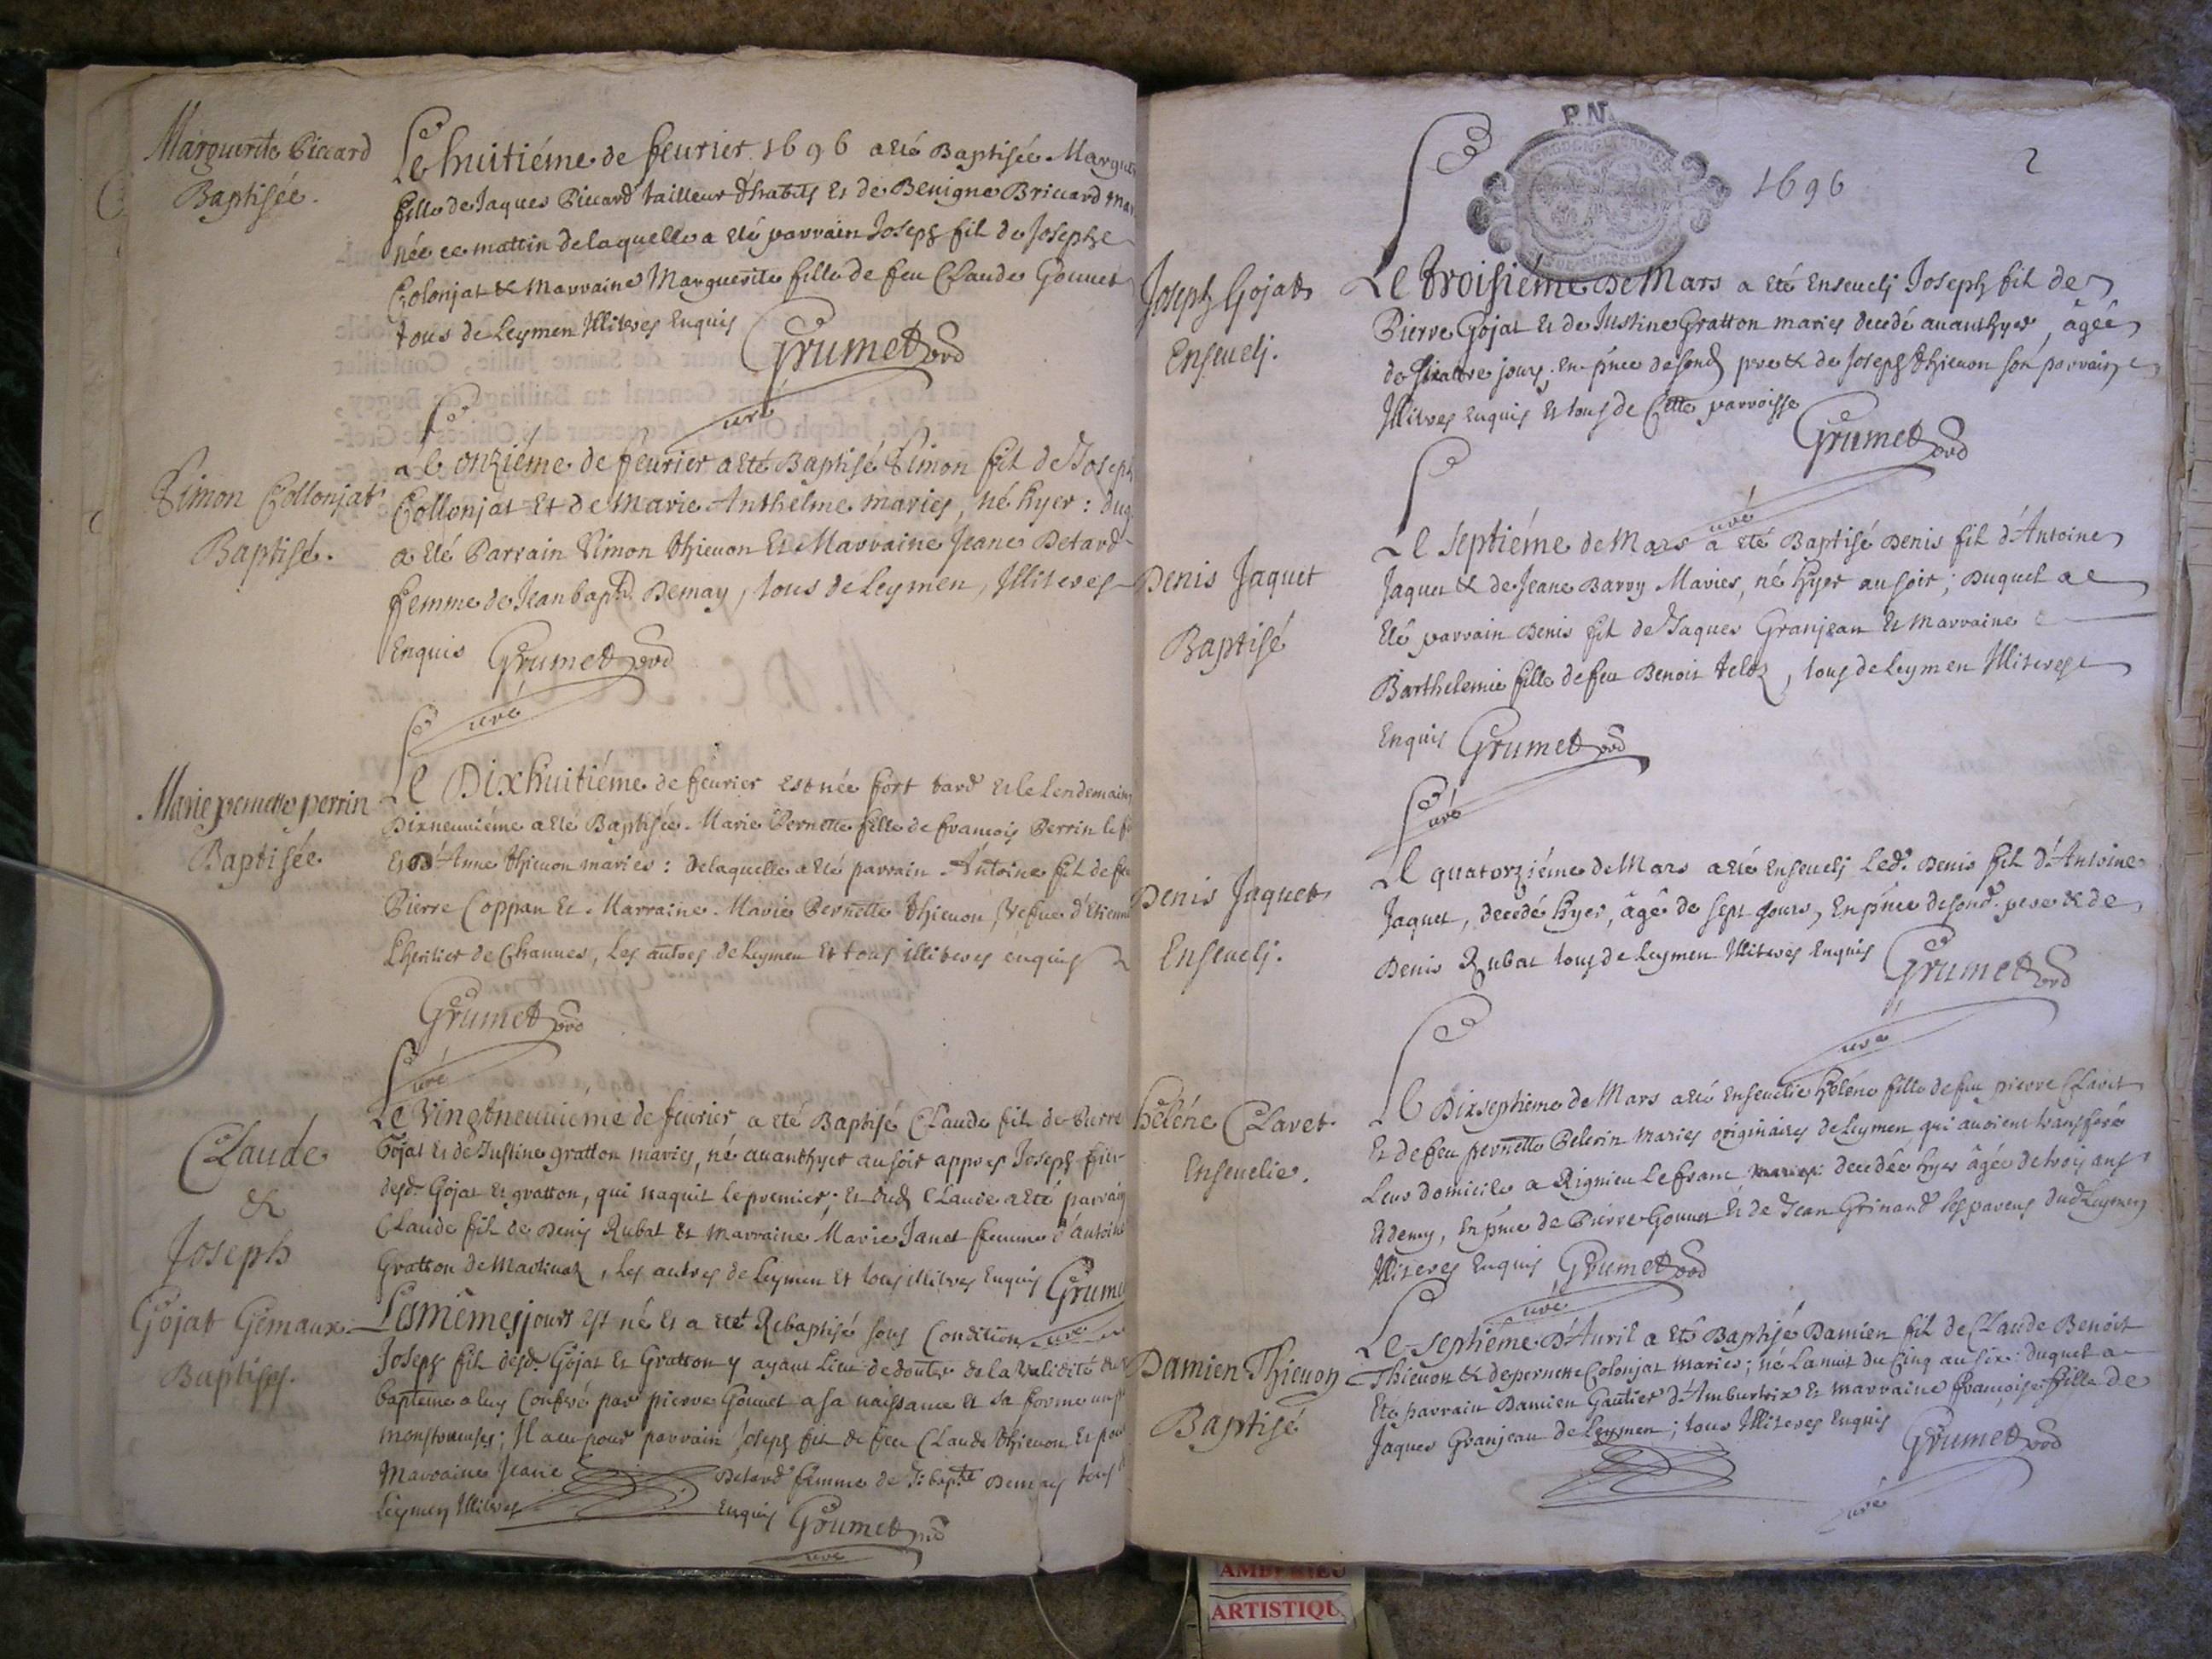 Marguerite Piccard
Baptisée.
Le huitiéme de feurier 1696 a eté Baptisée Margue
fille de Jaques Piccard tailleur d'habits et de Benigne Briccard mar
née ce mattin de laquelle a eté parrain Joseph fil de Josephe
Colonjat & Marraine Marguerite fille de feu Claude Gonnet
tous de Leymen Illiteres Enquis Grumet
curé
Simon Collonjat
Baptisé.
Le onziéme de feurier a eté Baptisé Simon fil de Joseph
Collonjat Et de Marie Anthelme maries, né hyer: duq
a eté Parrain Simon thieuon Et Marraine Jeane Detard
femme de Jean bapt. Demay, tous de Leymen, Illiteres
Enquis Grumet
curé
Marie pernette perrin
Baptisée
Le Dixhuitiéme de feurier est née fort tard et le Lendemain
Dixneuuiéme a eté Baptisée Marie Pernette fille de francois Perrin le
Et D'Anne thieuon maries: de laquelle a eté parrain Antoine fil de feu
Pierre Coppan Et Marraine Marie Pernette thieuon Vefue d'Etienne
Lheritier de Channes, Les autres de Leymen Et tous illiteres enquis
Grumet
curé
Claude
&
Joseph
Gojat Gémaux
Baptises.
Le Vingtneuuiéme de feurier a eté Baptisé Claude fil de Pierre
Gojat et de Justine gratton maries, né auanthyer au soir appres Joseph fil
desd. Gojat et gratton, qui naquit le premier; Et dud Claude a eté parrain
Claude fil de Denis Rubat et marraine Marie Janet femme d'antoine
Gratton de , Les autres de Leymen Et tous illitres Enquis Grumet
La mêmes jours est né et a eté Rebaptisé sous Condition curé
Joseph fil desd. Gojat et Gratton y ayant Lieu de douter de la Validité du
bapteme a luy Conferé par pierre Gonnet a sa naissance et sa forme
monstrueuses; Il a eu pour parrain Joseph fil de feu Claude thieuon Et pour
Marraine Jeane Detard femme de J: bapte Demay tous
Leymen Illitres Enquis Grumet
curé
P.N.
1696
2
Joseph Gojat
Enseuelj.
Le troisiéme De Mars a eté Enseuelj Joseph fil de
Pierre Gojat Et de Justine Gratton maries decedé auanthyer, âgée
de quatre jours, En pnce de sond pere & de Joseph thieuon son parrain
Illitres Enquis Et tous de Cette parroisse
Grumet
curé
Denis Jaquet
Baptisé
Le septiéme de Mars a eté Baptisé Denis fil d'Antoine
Jaquet & de Jeane Barry Maries, né hyer au soir; Duquel a
eté parrain Denis fil de Jaques Granjean Et Marraine
Barthelemie fille de feu Benoit , tous de Leymen Illiteres
Enquis Grumet
curé
Denis Jaquet
Enseuelj.
Le quatorziéme de Mars a eté Enseuelj Led. Denis fil d'Antoine
Jaquet, decedé hyer, âgé de sept jours, En pnce de sond. pere & de
Denis Rubat tous de Leymen Illiteres Enquis Grumet
curé
Hélène Clavet
Enseuelie.
Le Dixseptieme de Mars a eté Enseuelie Héléne fille de feu pierre Clavet
Et de feu pernette Pelerin maries originaires de Leymen qui auoient transferé
Leur domicile a Rignieu Le franc decedée hyer âgée de trois ans
Et demy, En pnce de Pierre Gonnet Et de Jean Grinand ses parens dud Leymen
Illiteres Enquis Grumet
curé
Damien Thieuon
Baptisé
Le septiéme D'Auril a eté Baptisé Damien fil de Claude Benoit
Thieuon & de pernette Colonjat maries; né La nuit du Cinq au six: duquel a
Ete parrain Damien Gautier d'Ambutrix et marraine francoise fille de
Jaques Granjean de Leymen; tous Illiteres Enquis Grumet
curé
AMBERIEU
ARTISTIQU